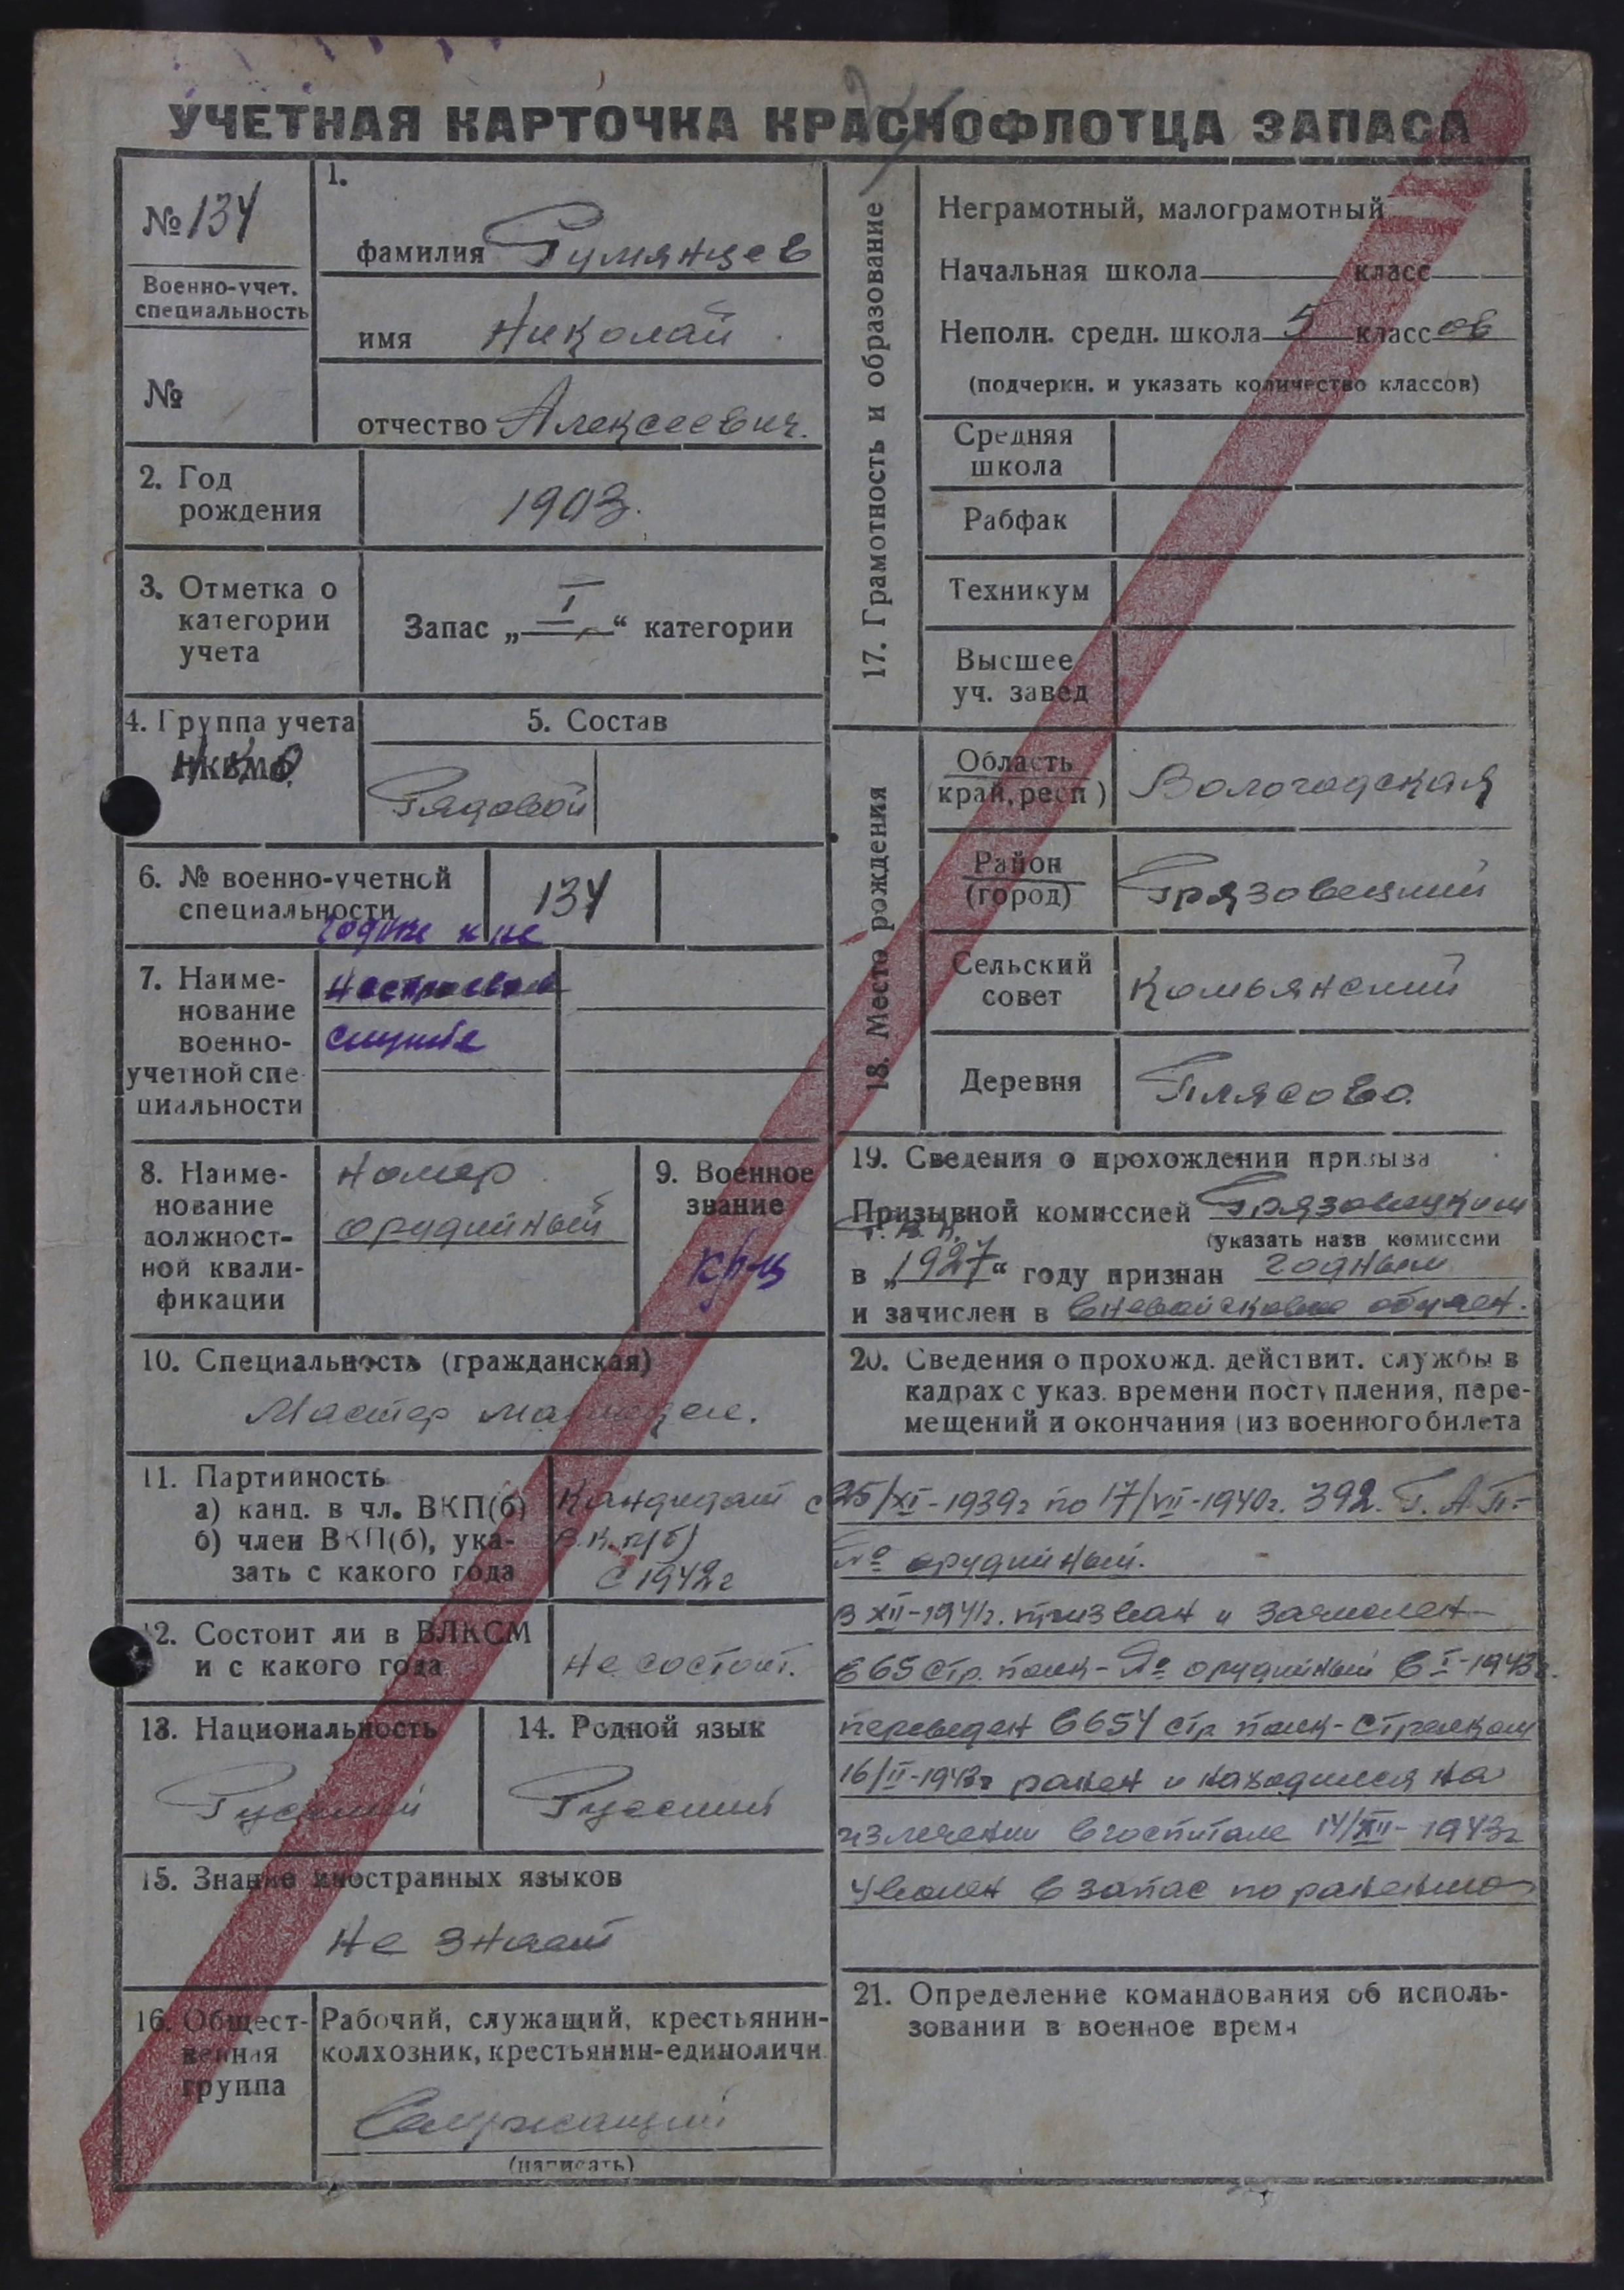 УЧЕТНАЯ КАРТОЧКА КРАСНОФЛОТЦА ЗАПАСА
№ 134
Военно-учет.
специальность
№
1.
фамилия Румянцев
имя Николай
отчество Алексеевич.
2. Год
рождения
1903.
3. Отметка о
категории
учета
Запас „I“ категории
4. Группа учета
НКВМФ
5. Состав
Рядовой
6. № военно-учетной
специальности
134
годные к не
7. Наиме-
нование
военно-
учетной спе
циальности
нестроевой
службе
8. Наиме-
нование
должност-
ной квали-
фикации
Номер
орудийный
9. Военное
звание
кр-ц
10. Специальность (гражданская)
Мастер
11. Партийность
а) канд. в чл. ВКП(б)
б) член ВКП(б), ука-
зать с какого года
Кандидат
В.К.П(б)
с 1942г
12. Состоит ли в ВЛКСМ
и с какого года
Не состоит.
13. Национальность
Русский
14. Родной язык
Русский
15. Знание иностранных языков
Не знает
16. Общест-
венная
группа
Рабочий, служащий, крестьянин-
колхозник, крестьянин-единоличн
Служащий
(написать)
17. Грамотность и образование
Неграмотный, малограмотный
Начальная школа класс
Неполн. средн. школа 5 классов
(подчеркн. и указать количество классов)
Средняя
школа
Рабфак
Техникум
Высшее
уч. завед
18. Место рождения
Область
край, респ)
Вологодская
Район
(город)
Грязовецкий
Сельский
совет
Комьянский
Деревня
Плясово.
19. Сведения о прохождении призыва
Призывной комиссией Грязовецким
(указать назв комиссии
в „1927“ году признан годным
и зачислен в вневойсковое обучен.
20. Сведения о прохожд. действит. службы в
кадрах с указ. времени поступления, пере-
мещений и окончания (из военного билета
с 25/XI-1939г по 17/VII-1940г. 392. Г.А.П.-
№ орудийный.
В XII-1941г. призван и зачислен
в 65 стр. полк - № орудийный в I-1943г.
переведен в 654 стр полк - стрелком
16/II-1943г ранен и находился на
излечении в госпитале 14/XII-1943г
Уволен в запас по ранению
21. Определение командования об исполь-
зовании в военное время